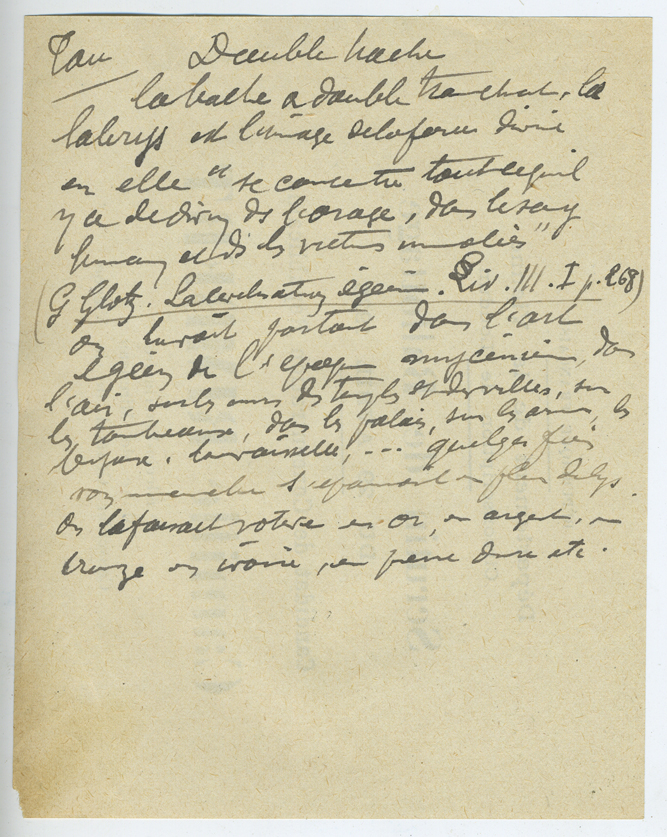 Tau Double hache
La hache a double tranchant, la
labrys est l'image de la force divine
en elle "se concentre tout ce qu'il
y a de divin ds l'orage, dans le sang
humain et ds les victimes immolées"
(G Glotz. La civilisation égéenne. Liv. III. I p. 268)
on la voit partout dans l'art
égéen de l'époque mycénienne, dans
l'air, sur les murs des temples et des villes, sur
les tombeaux, dans les palais, sur les armes, les
bijoux, la vaisselle, ... quelques fois
son manche s'épanouit en fleur de lys.
On la faisait votive en or, en argent, en
bronze en ivoire, en pierre dure etc.